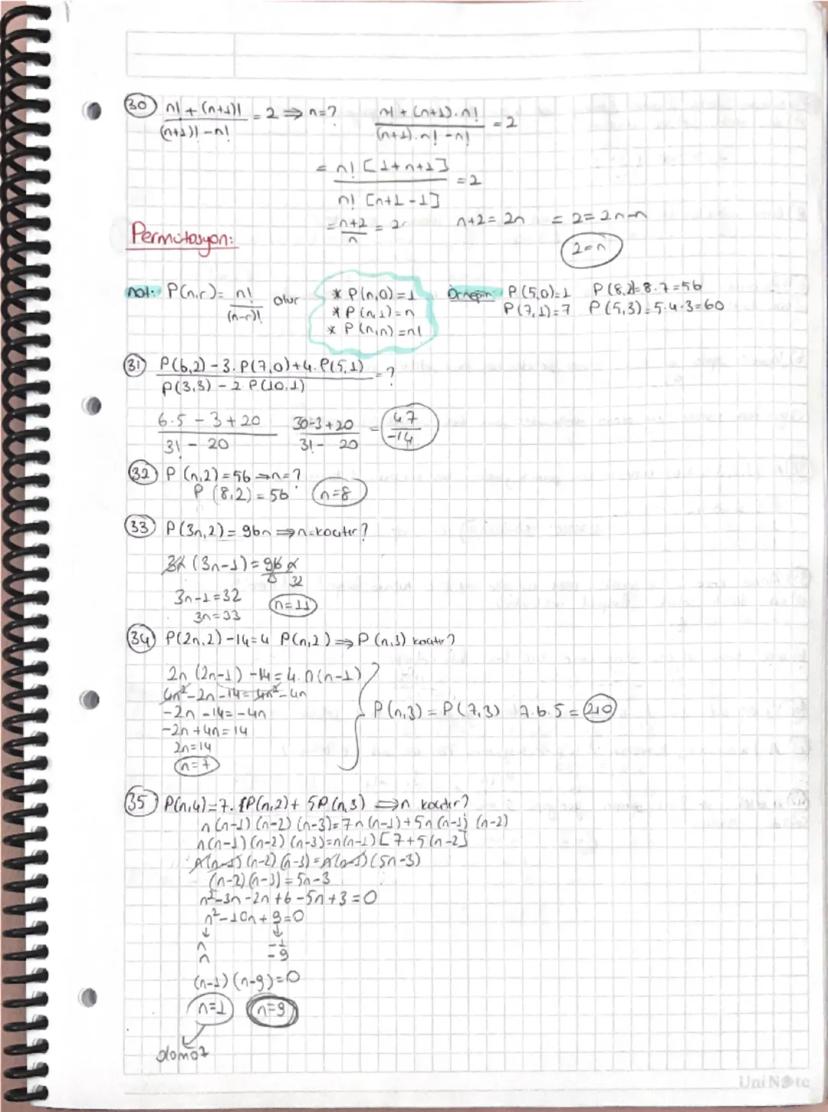 30 n! + (n+1)! / (n+1)! - n! = 2 ⇒ n=? n! + (n+1).n! / (n+1).n! - n! = 2
= n! [1+n+1] / n! [n+1-1] = 2
= n+2 / n = 2 n+2 = 2n = 2 = 2n-n
2=n
Permütasyon:
not: P(n,r) = n! / (n-r)! olur * P(n,0)=1 Örneğin: P(5,0)=1 P(8,2)=8.7=56
* P(n,1)=n P(7,1)=7 P(5,3)=5.4.3=60
* P(n,n)=n!
31 P(6,2) - 3.P(7,0) + 4.P(5,1) / P(3,3) - 2.P(10,1) = ?
6.5 - 3 + 20 / 3! - 20 30-3+20 / 3! - 20 = 47 / -14
32 P(n,2) = 56 ⇒ n=?
P(8,2) = 56 n=8
33 P(3n,2) = 96n ⇒ n kaçtır?
3n (3n-1) = 96 n / 3 32
3n-1=32 n=11
3n=33
34 P(2n,2) - 14 = 4 P(n,2) ⇒ P(n,3) kaçtır?
2n (2n-1) - 14 = 4.n(n-1)
4n² - 2n - 14 = 4n² - 4n
-2n - 14 = -4n P(n,3) = P(7,3) 7.6.5 = 210
-2n + 4n = 14
2n=14
n=7
35 P(n,4) = 7.P(n,2) + 5P(n,3) ⇒ n kaçtır?
n(n-1)(n-2)(n-3) = 7n(n-1) + 5n(n-1)(n-2)
n(n-1)(n-2)(n-3) = n(n-1)[7+5(n-2]
n(n-1)(n-2)(n-3) = n(n-1)(5n-3)
(n-2)(n-3) = 5n-3
n²-3n-2n+6-5n+3=0
n²-10n+9=0
n -1
n -9
(n-1)(n-9)=0
n=1 n=9
olamaz
UniNote